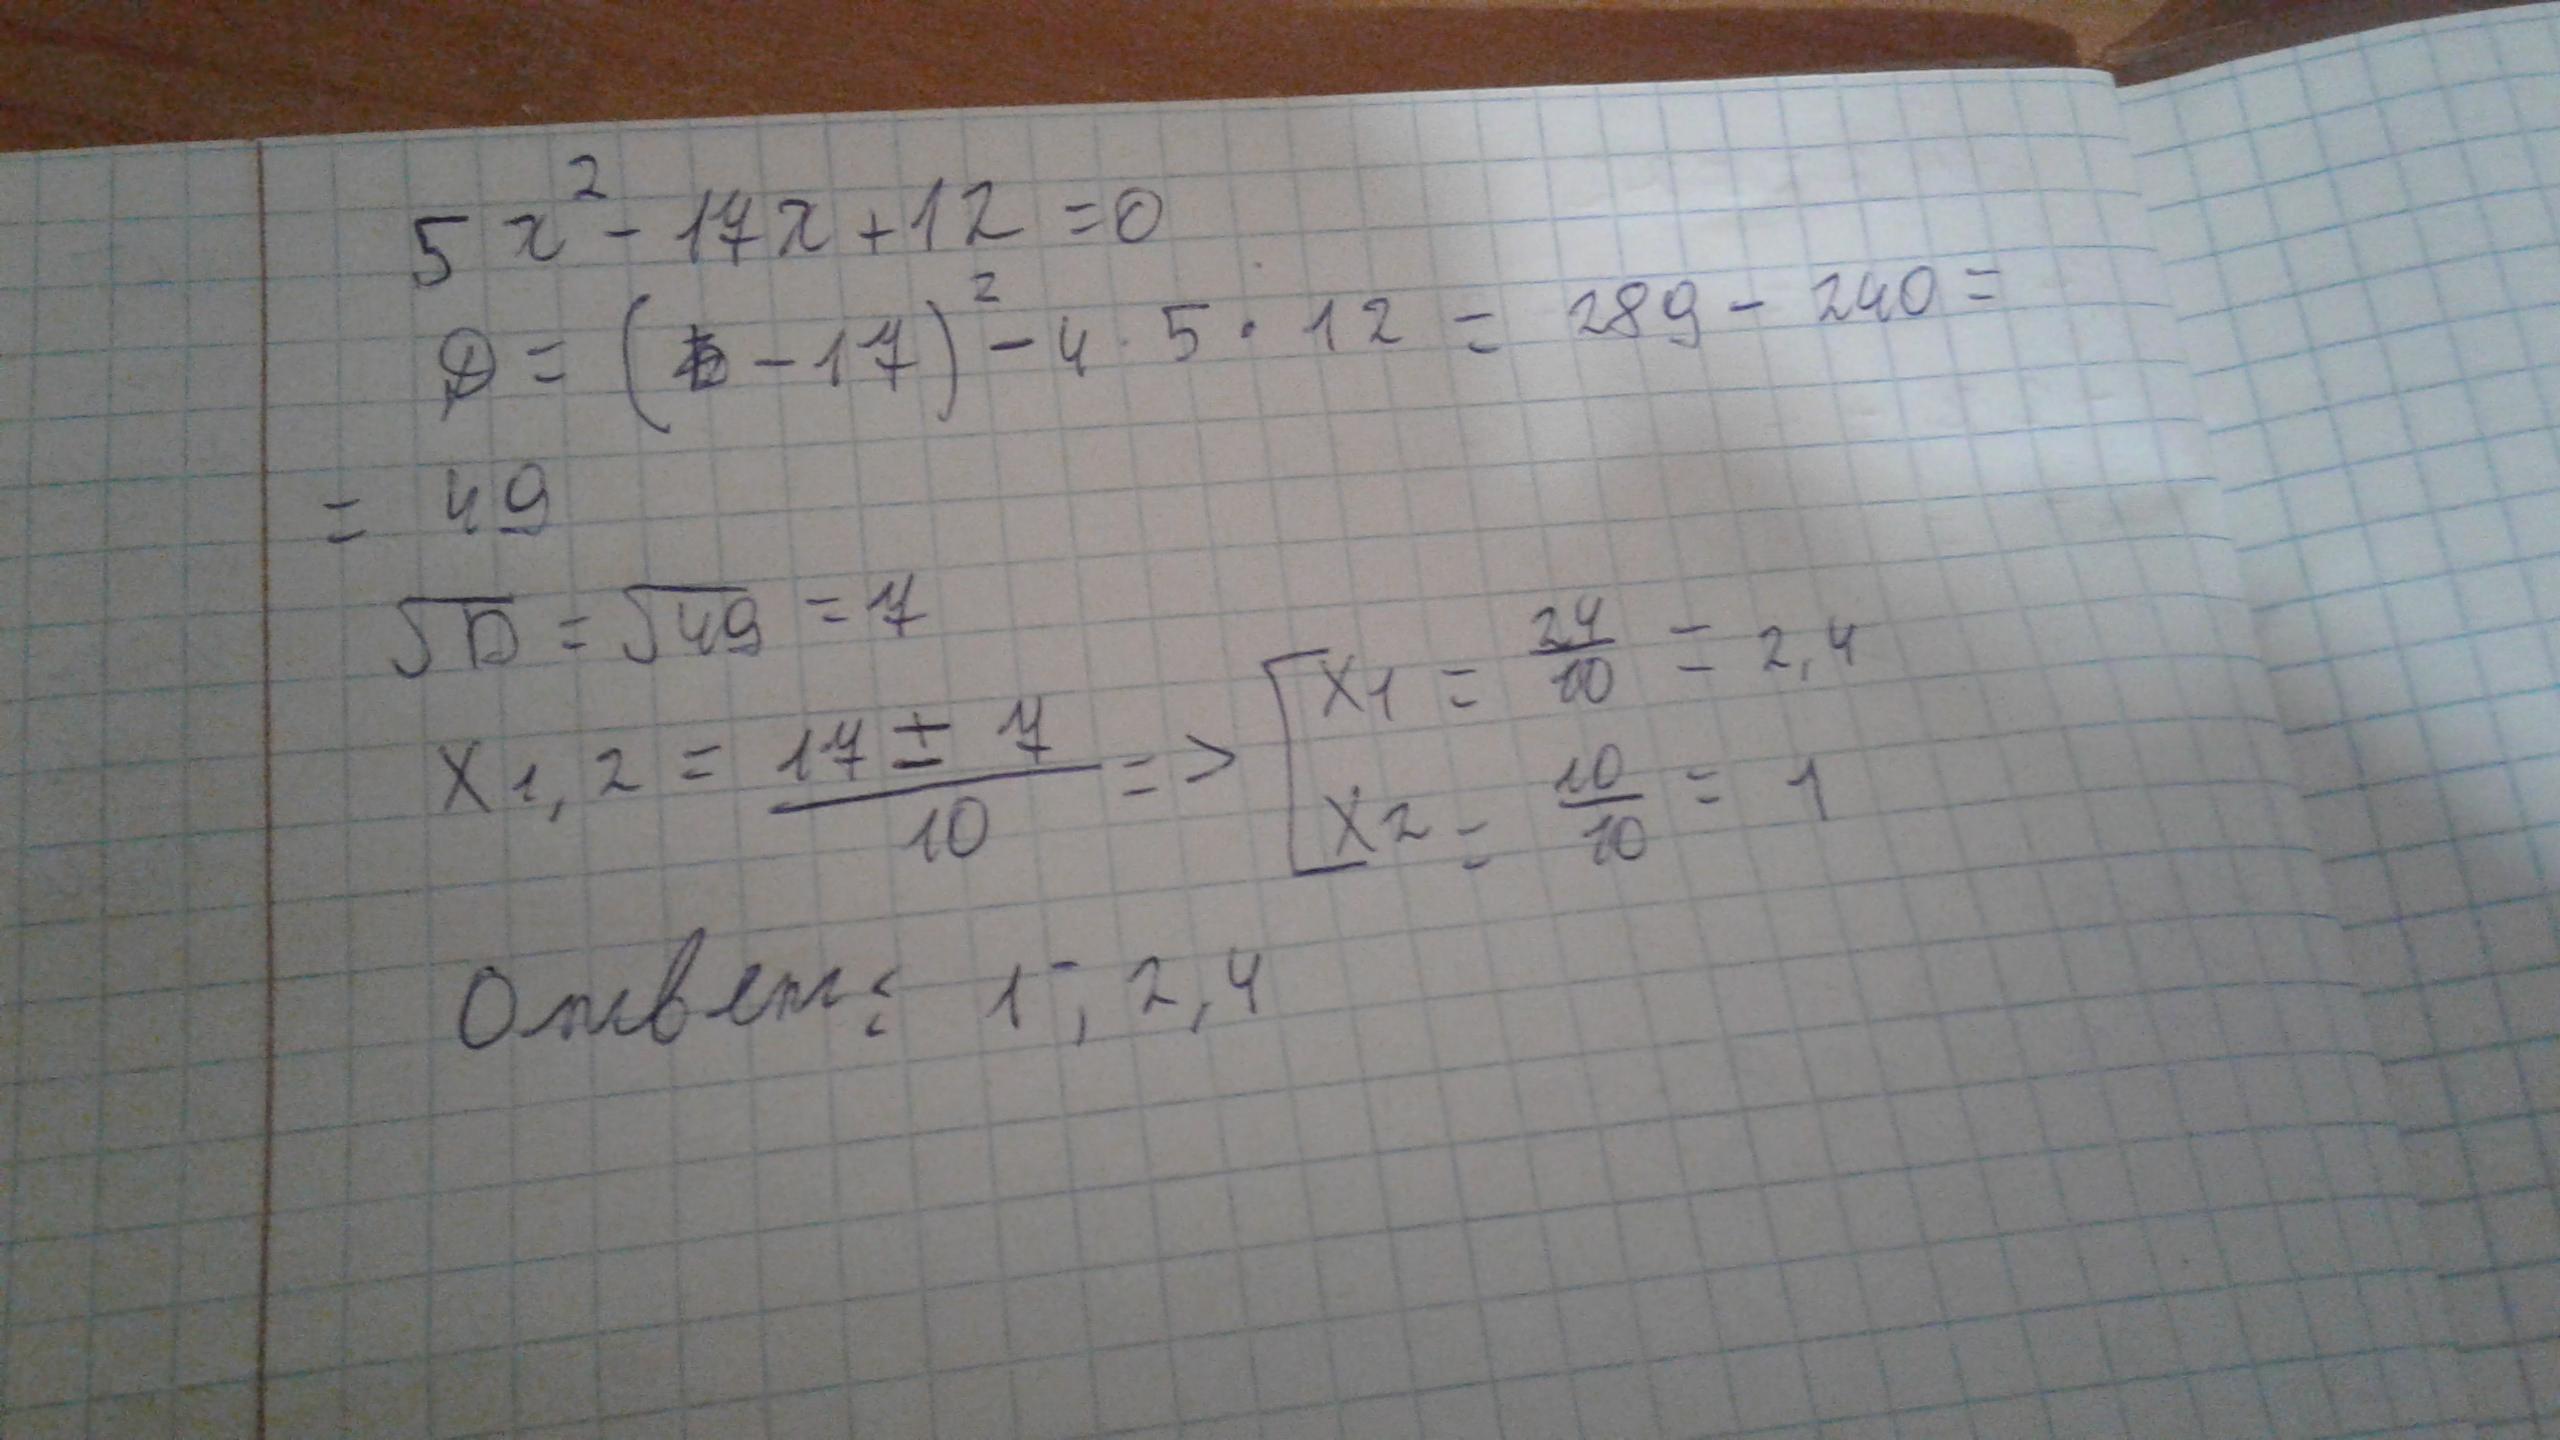 5x² - 17x + 12 = 0
D = (-17)² - 4 · 5 · 12 = 289 - 240 =
= 49
√D = √49 = 7
x1,2 = (17 ± 7)/10 => [ x1 = 24/10 = 2,4
x2 = 10/10 = 1
Ответ: 1; 2,4